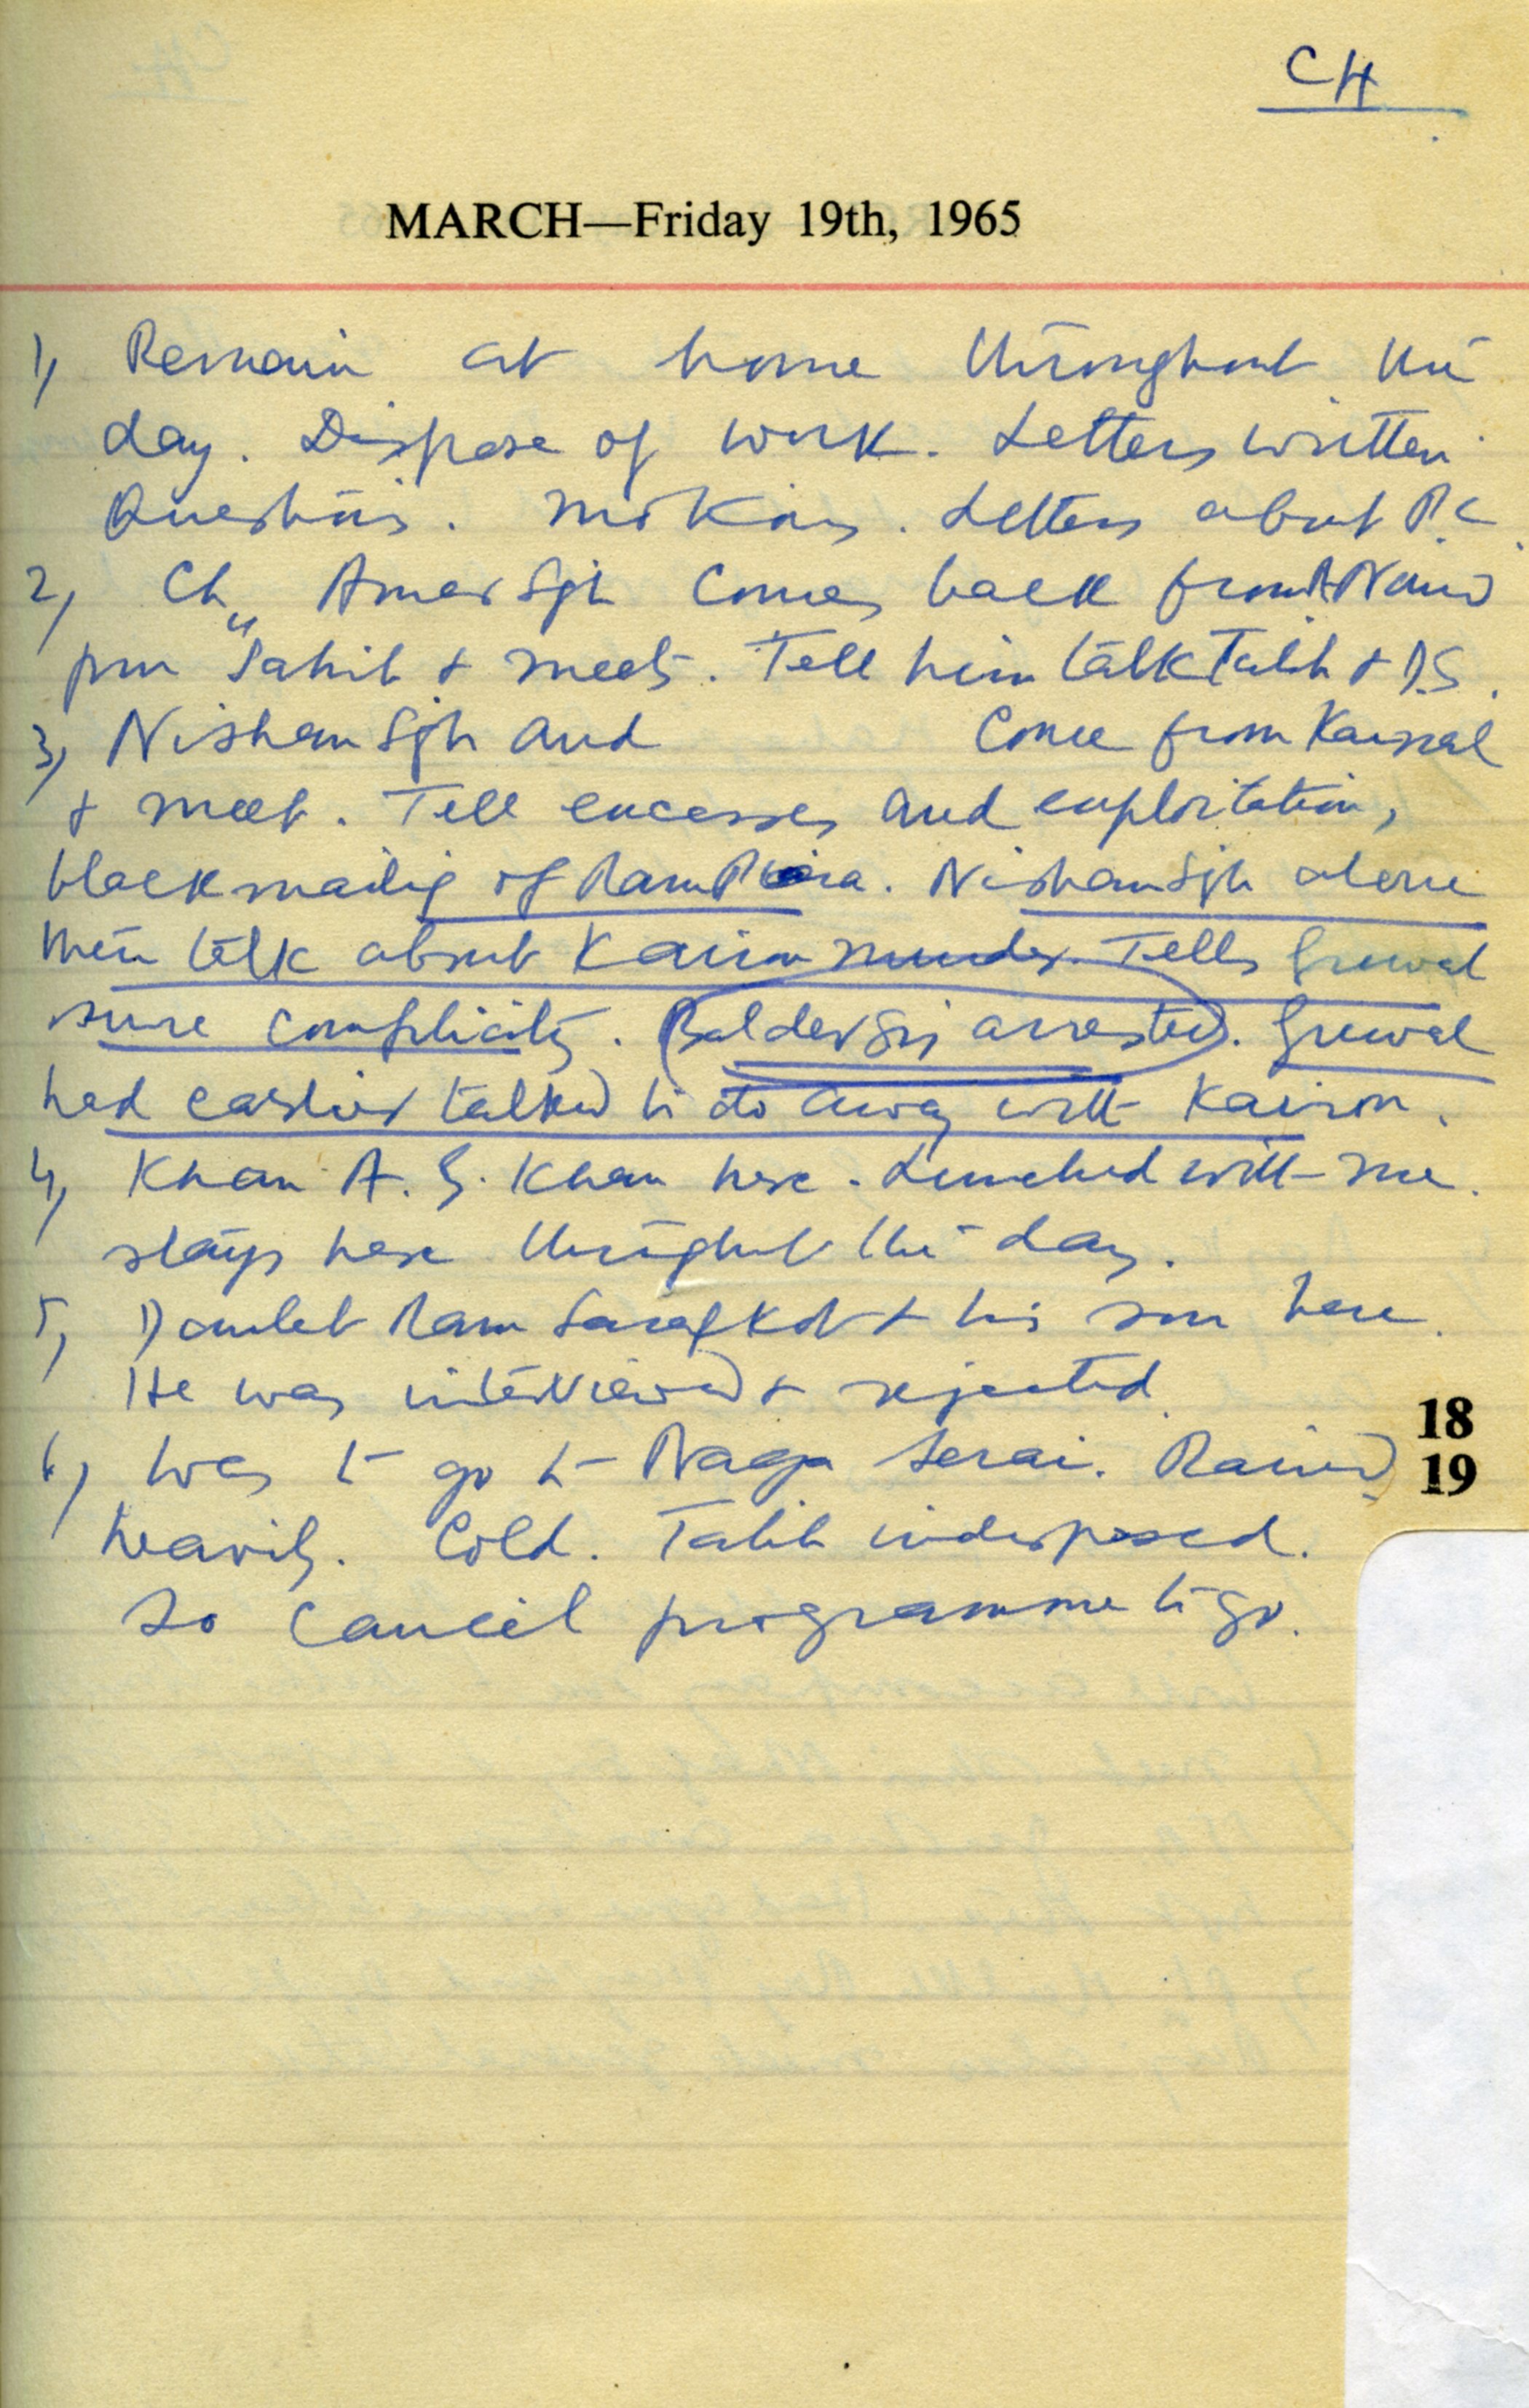 CH
MARCH—Friday 19th, 1965
1, Remain at home throughout the
day. Dispose of work. Letters written
Questions. Motions. Letters about P.C.
2, Ch,, Amar Sgh comes back from A Nand
pur Sahib & meets. Tell him talk Talib & D.S.
3, Nishan Sgh and come from Karnal
& meet. Tell excesses and exploitation,
blackmailig of Ram Piara. Nishan Sgh alone
then talk about Kairon murder. Tells Grewal
sure complicity. Baldev Sgh arrested. Grewal
had earlier talked to do away with Kairon.
4, Khan A. G. Khan here. Lunched with me.
stays here throughout the day.
5, Daulat Ram Saraf Kot & his son here.
He was interviewed & rejected.
6, Was to go to Naga Serai. Rained
heavily. Cold. Talib indisposed.
So cancel programme to go.
18
19